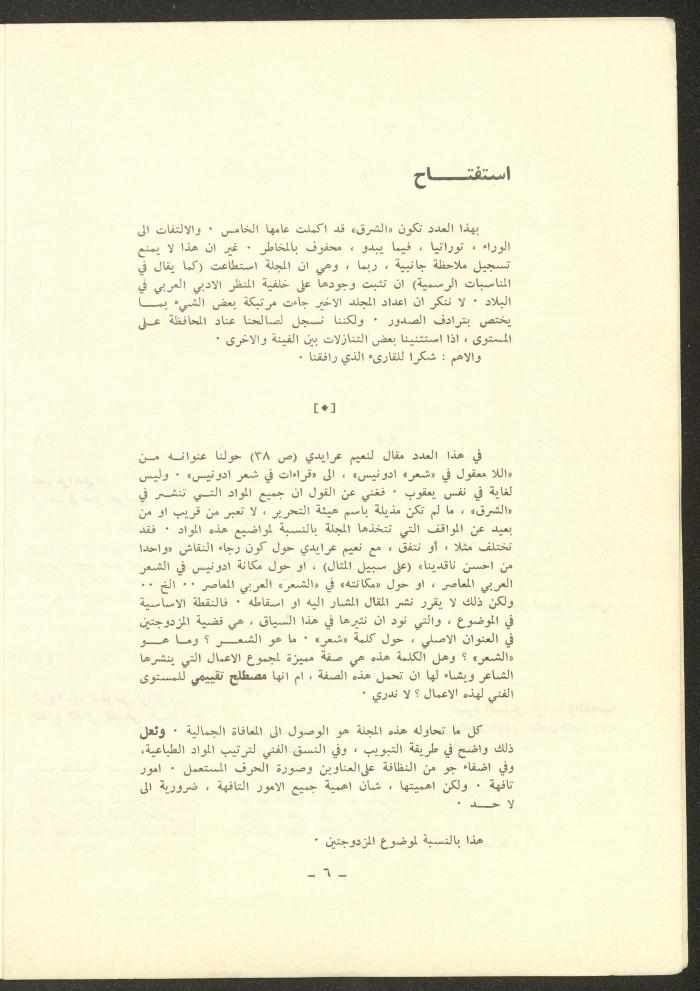 استفتـــــاح
بهذا العدد تكون «الشرق» قد اكملت عامها الخامس ٠ والالتفات الى
الوراء ، توراتيا ، فيما يبدو ، محفوف بالمخاطر ٠ غير ان هذا لا يمنع
تسجيل ملاحظة جانبية ، ربما ، وهي ان المجلة استطاعت (كما يقال في
المناسبات الرسمية) ان تثبت وجودها على خلفية المنظر الادبي العربي في
البلاد ٠ لا ننكر ان اعداد المجلد الاخير جاءت مرتبكة بعض الشيء بمــا
يختص بترادف الصدور ٠ ولكننا نسجل لصالحنا عناد المحافظة علـى
المستوى ، اذا استثنينا بعض التنازلات بين الفينة والاخرى ٠
والاهم : شكرا للقارىء الذي رافقنا ٠
[◆]
في هذا العدد مقال لنعيم عرايدي (ص ٣٨) حولنا عنوانــه مــن
«اللا معقول في «شعر» ادونيس» ، الى «قراءات في شعر ادونيس» ٠ وليس
لغاية في نفس يعقوب ٠ فغني عن القول ان جميع المواد التــي تنشــر في
«الشرق» ، ما لم تكن مذيلة باسم هيئة التحرير ، لا تعبر من قريب او من
بعيد عن المواقف التي تتخذها المجلة بالنسبة لمواضيع هذه المواد ٠ فقد
نختلف مثلا ، أو نتفق ، مع نعيم عرايدي حول كون رجاء النقاش «واحدا
من احسن ناقدينا» (على سبيل المثال) ، او حول مكانة ادونيس في الشعر
العربي المعاصر ، او حول «مكانته» في «الشعر» العربي المعاصر ٠٠ الخ ٠٠
ولكن ذلك لا يقرر نشر المقال المشار اليه او اسقاطه ٠ فالنقطة الاساسية
في الموضوع ، والتي نود ان نثيرها في هذا السياق ، هي قضية المزدوجتين
في العنوان الاصلي ، حول كلمة «شعر» ٠ ما هو الشعــر ؟ ومـا هــو
«الشعر» ؟ وهل الكلمة هذه هي صفة مميزة لمجموع الاعمال التي ينشرها
الشاعر ويشاء لها ان تحمل هذه الصفة ، ام انها مصطلح تقييمي للمستوى
الفني لهذه الاعمال ؟ لا ندري ٠
كل ما تحاوله هذه المجلة هو الوصول الى المعافاة الجمالية ٠ ولعل
ذلك واضح في طريقة التبويب ، وفي النسق الفني لترتيب المواد الطباعية،
وفي اضفاء جو من النظافة على العناوين وصورة الحرف المستعمل ٠ امور
تافهة ٠ ولكن اهميتها ، شأن اهمية جميع الامور التافهة ، ضرورية الى
لا حــد ٠
هذا بالنسبة لموضوع المزدوجتين ٠
– ٦ –